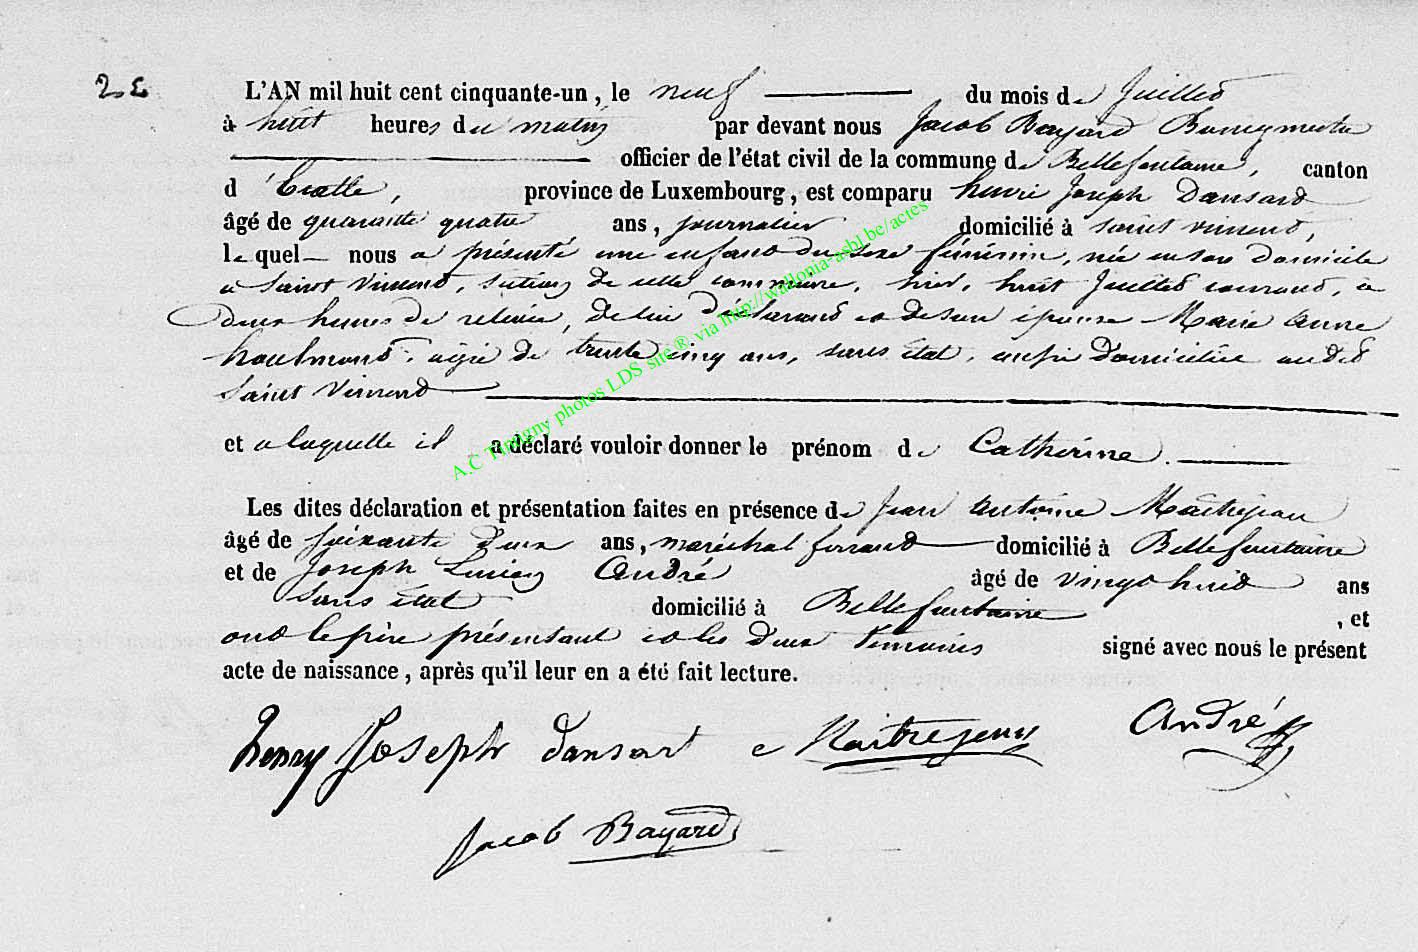 22
L'AN mil huit cent cinquante-un, le neuf du mois de Juillet
à huit heures du matin par devant nous Jacob Bayard Bourgmestre
officier de l'état civil de la commune de Bellefontaine, canton
d'Etalle, province de Luxembourg, est comparu henri Joseph Dansard
âgé de quarante quatre ans, journalier domicilié à saint vincent,
lequel nous a présenté une enfant du sexe féminin, née en son domicile
a Saint Vincent, section de cette commune, hier, huit Juillet courant, a
deux heures de relevée, de lui déclarant et de son épouse Marie anne
agée de trente cinq ans, sans état, aussi domiciliée au dit
Saint Vincent
et a laquelle il a déclaré vouloir donner le prénom de Catherine.
Les dites déclaration et présentation faites en présence de Jean antoine Maitrejean
âgé de soixante deux ans, maréchal ferrant domicilié à Bellefontaine
et de Joseph Lucien André âgé de vingt huit ans
Sans état domicilié à Bellefontaine, et
ont le père présentant et les deux témoins signé avec nous le présent
acte de naissance, après qu'il leur en a été fait lecture.
henry Joseph dansart Maitrejean André
Jacob Bayard
A.C Tintigny photos LDS site ® via http://wallonia-asbl.be/actes